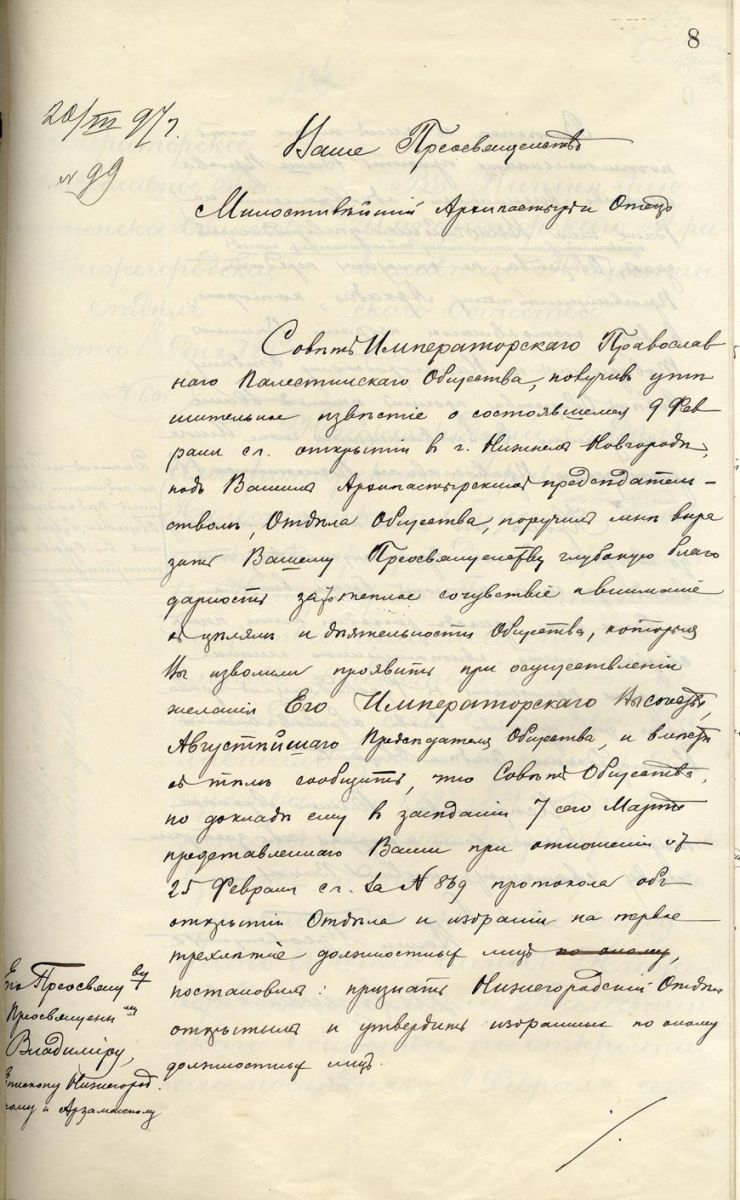 8
20/III 97 г.
№ 99
Ваше Преосвященство
Милостивѣйшій Архипастырь и Отецъ
Совѣтъ Императорскаго Православ
наго Палестинскаго Общества, получивъ утѣ
шительное извѣстіе о состоявшемся 9 Фев
раля с.г. открытіи въ г. Нижнемъ Новгородѣ,
подъ Вашимъ Архипастырскимъ предсѣдатель-
ствомъ, Отдѣла Общества, поручилъ мнѣ выра
зить Вашему Преосвященству глубокую благо
дарность за теплое сочувствіе и вниманіе
къ цѣлямъ и дѣятельности Общества, которыя
Вы изволили проявить при осуществленіи
желанія Его Императорскаго Высочества,
Августѣйшаго Предсѣдателя Общества, и вмѣстѣ
съ тѣмъ сообщить, что Совѣтъ Общества,
по докладѣ ему въ засѣданіи 7 сего Марта
представленнаго Вами при отношеніи отъ
25 Февраля с.г. за № 869 протокола объ
открытіи Отдѣла и избраніи на первое
трехлѣтіе должностныхъ лицъ по оному,
постановилъ: признать Нижегородскій Отдѣлъ
открытымъ и утвердить избранныхъ по оному
должностныхъ лицъ.
Его Преосвящ ву
Преосвященн му
Владиміру,
Епископу Нижегород
скому и Арзамасскому